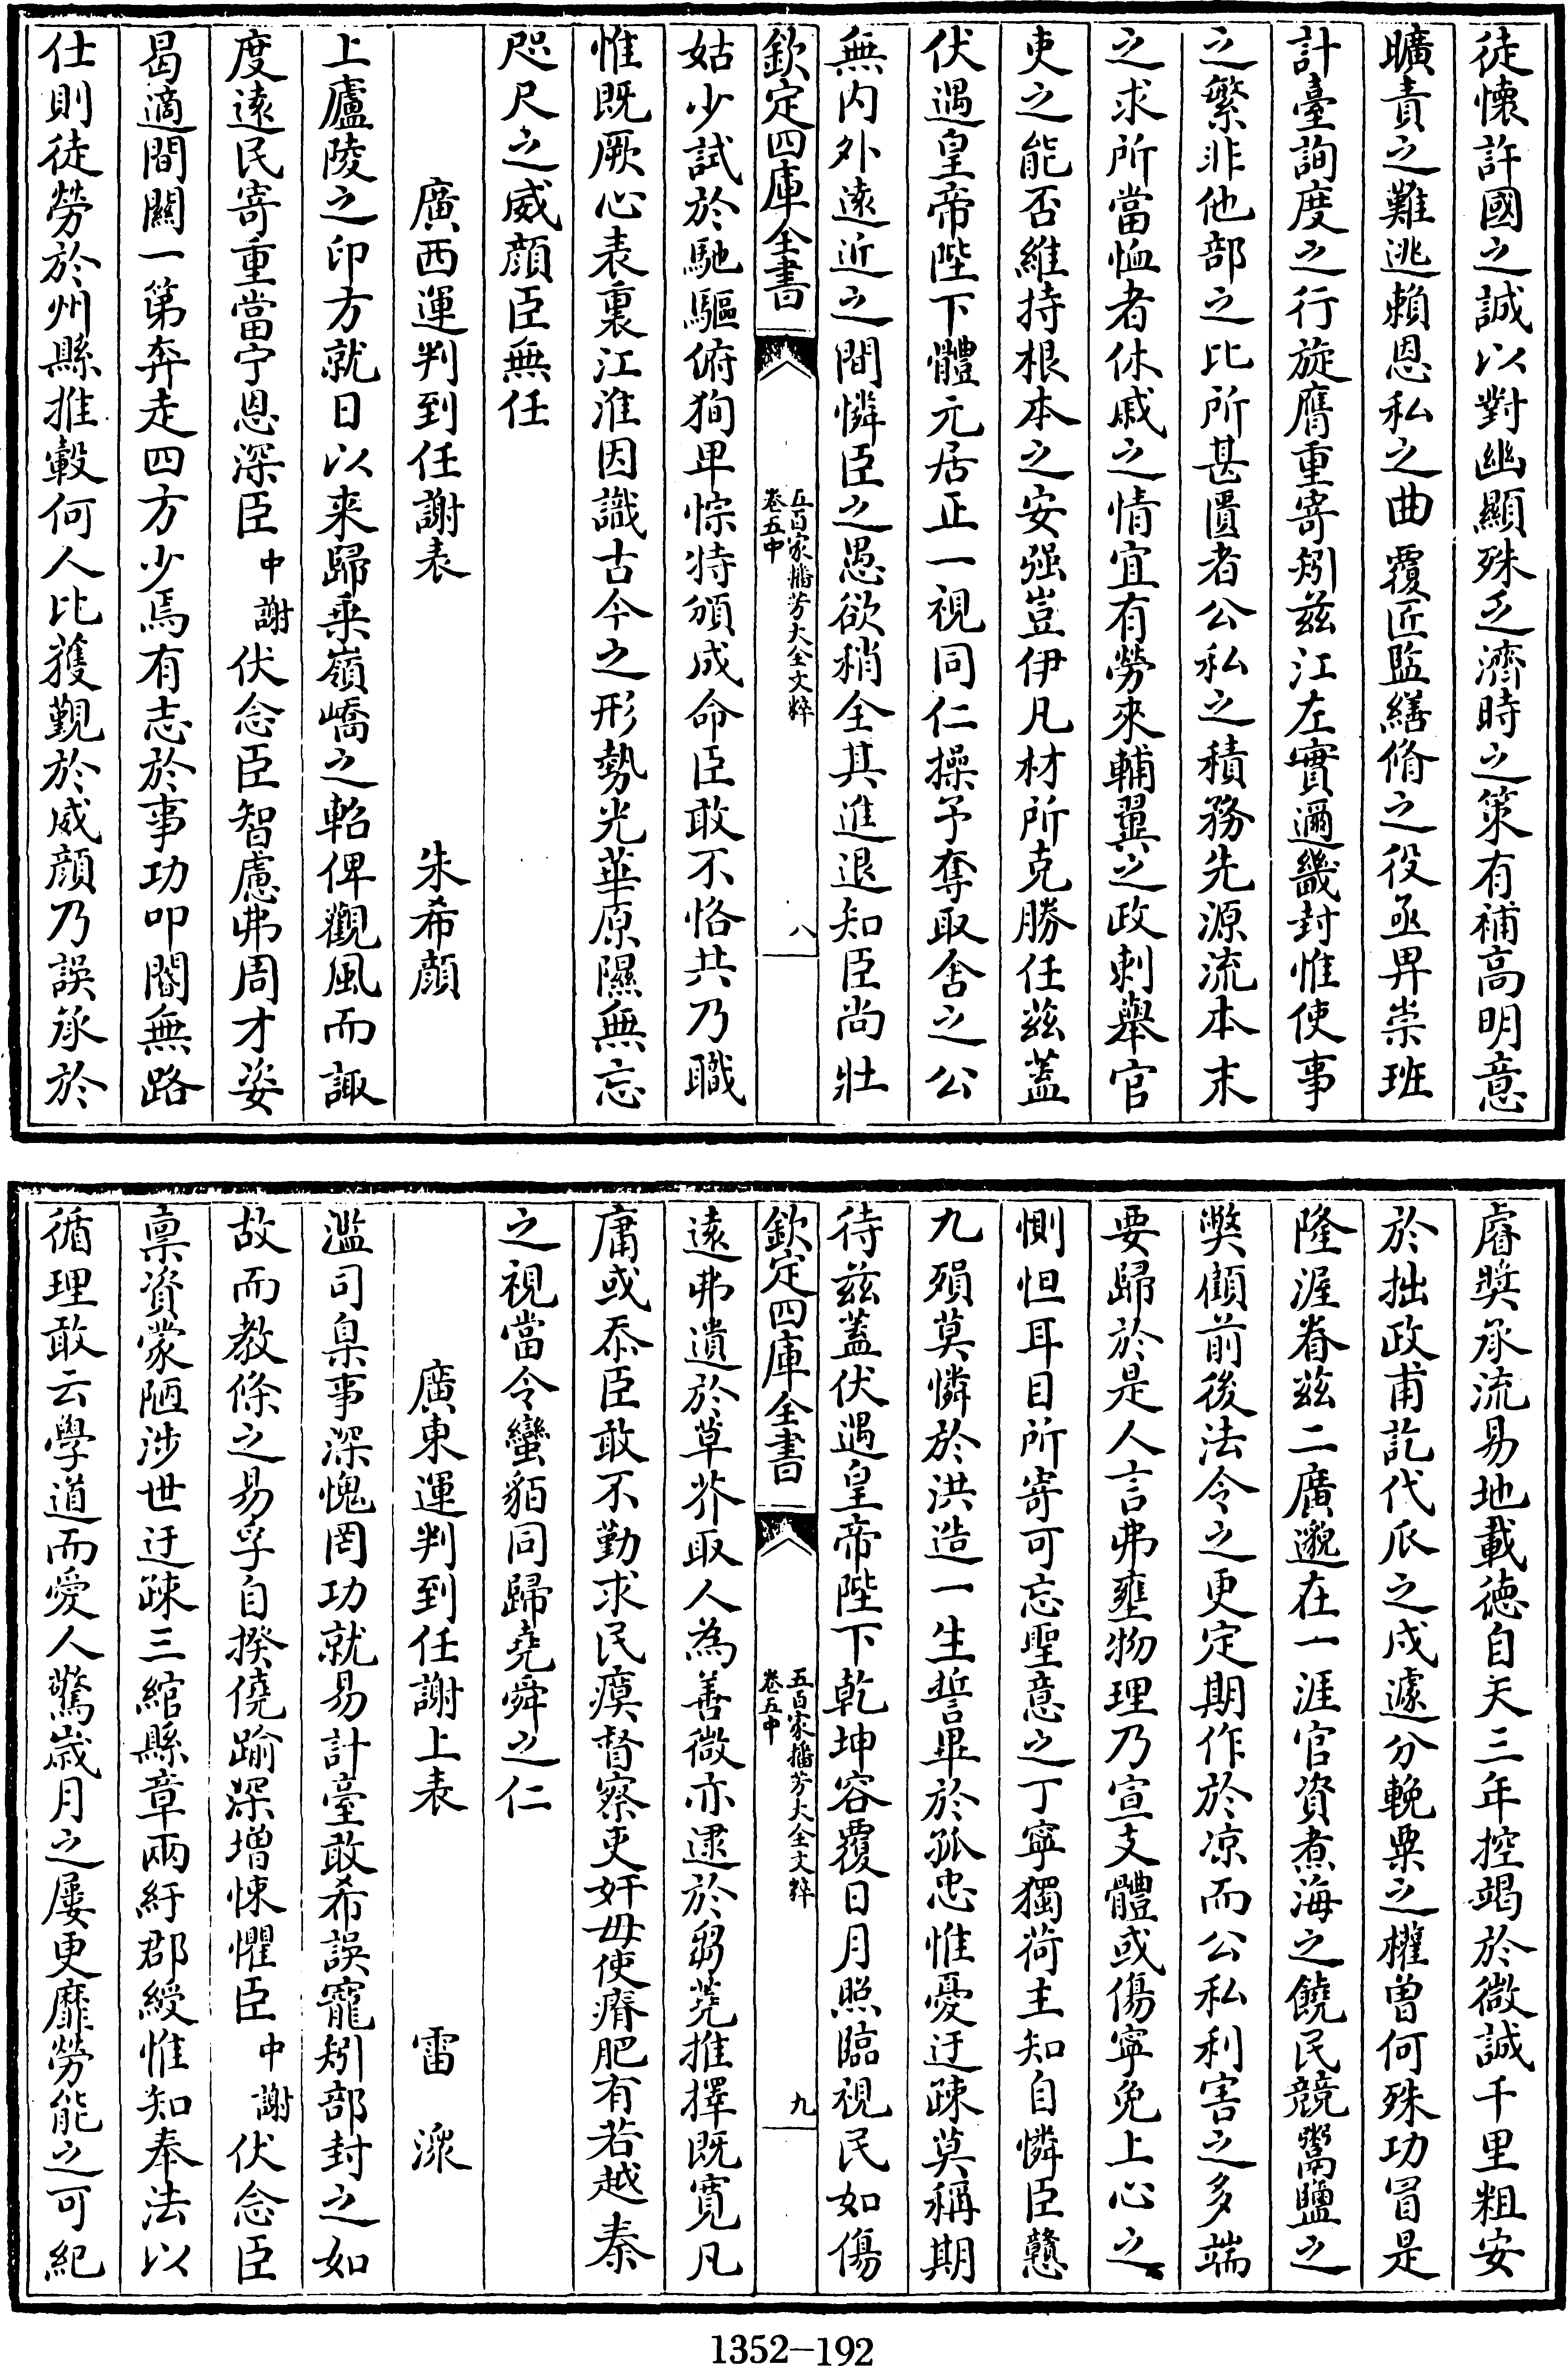 徒懷許國之誠以對幽顯殊乏濟時之策有補高明意
曠責之難逃賴恩私之曲覆匠監繕脩之役亟畀崇班
計臺詢度之行旋膺重寄矧兹江左實邇畿封惟使事
之繁非他部之比所甚匱者公私之積務先源流本末
之求所當恤者休戚之情宜有勞來輔翼之政刺舉官
吏之能否維持根本之安强豈伊凡材所克勝任兹蓋
伏遇皇帝陛下體元居正一視同仁操予奪取舍之公
無内外遠近之間憐臣之愚欲稍全其進退知臣尚壯
欽定四庫全書
五百家播芳大全文粹
卷五中
八
姑少試於馳驅俯狥卑悰特頒成命臣敢不恪共乃職
惟既厥心表裏江淮因識古今之形勢光華原隰無忘
咫尺之威顔臣無任
廣西運判到任謝表 朱希顔
上廬陵之印方就日以来歸乗嶺嶠之軺俾觀風而諏
度遠民寄重當宁恩深臣中謝伏念臣智慮弗周才姿
曷適間關一第奔走四方少焉有志於事功叩閽無路
仕則徒勞於州縣推轂何人比獲覲於威顔乃誤承於
睿奬承流易地載德自天三年控竭於微誠千里粗安
於拙政甫訖代瓜之戍遽分輓粟之權曽何殊功冒是
隆渥眷兹二廣邈在一涯官資煮海之饒民競鬻鹽之
獘傾前後法令之更定期作於凉而公私利害之多端
要歸於是人言弗壅物理乃宣支體或傷寧免上心之
惻怛耳目所寄可忘聖意之丁寧獨荷主知自憐臣戆
九殞莫憐於洪造一生誓畢於孤忠惟憂迂疎莫稱期
待兹蓋伏遇皇帝陛下乾坤容覆日月照臨視民如傷
欽定四庫全書
五百家播芳大全文粹
卷五中
九
遠弗遺於草芥取人為善微亦逮於芻蕘推擇既寛凡
庸或忝臣敢不勤求民瘼督察吏奸毋使瘠肥有若越秦
之視當令蠻貊同歸堯舜之仁
廣東運判到任謝上表 雷 潨
濫司臬事深愧罔功就易計臺敢希誤寵矧部封之如
故而教條之易孚自揆僥踰深增悚懼臣中謝伏念臣
禀資蒙陋涉世迂疎三綰縣章兩紆郡綬惟知奉法以
循理敢云學道而愛人驚歳月之屢更靡勞能之可紀
1352-192